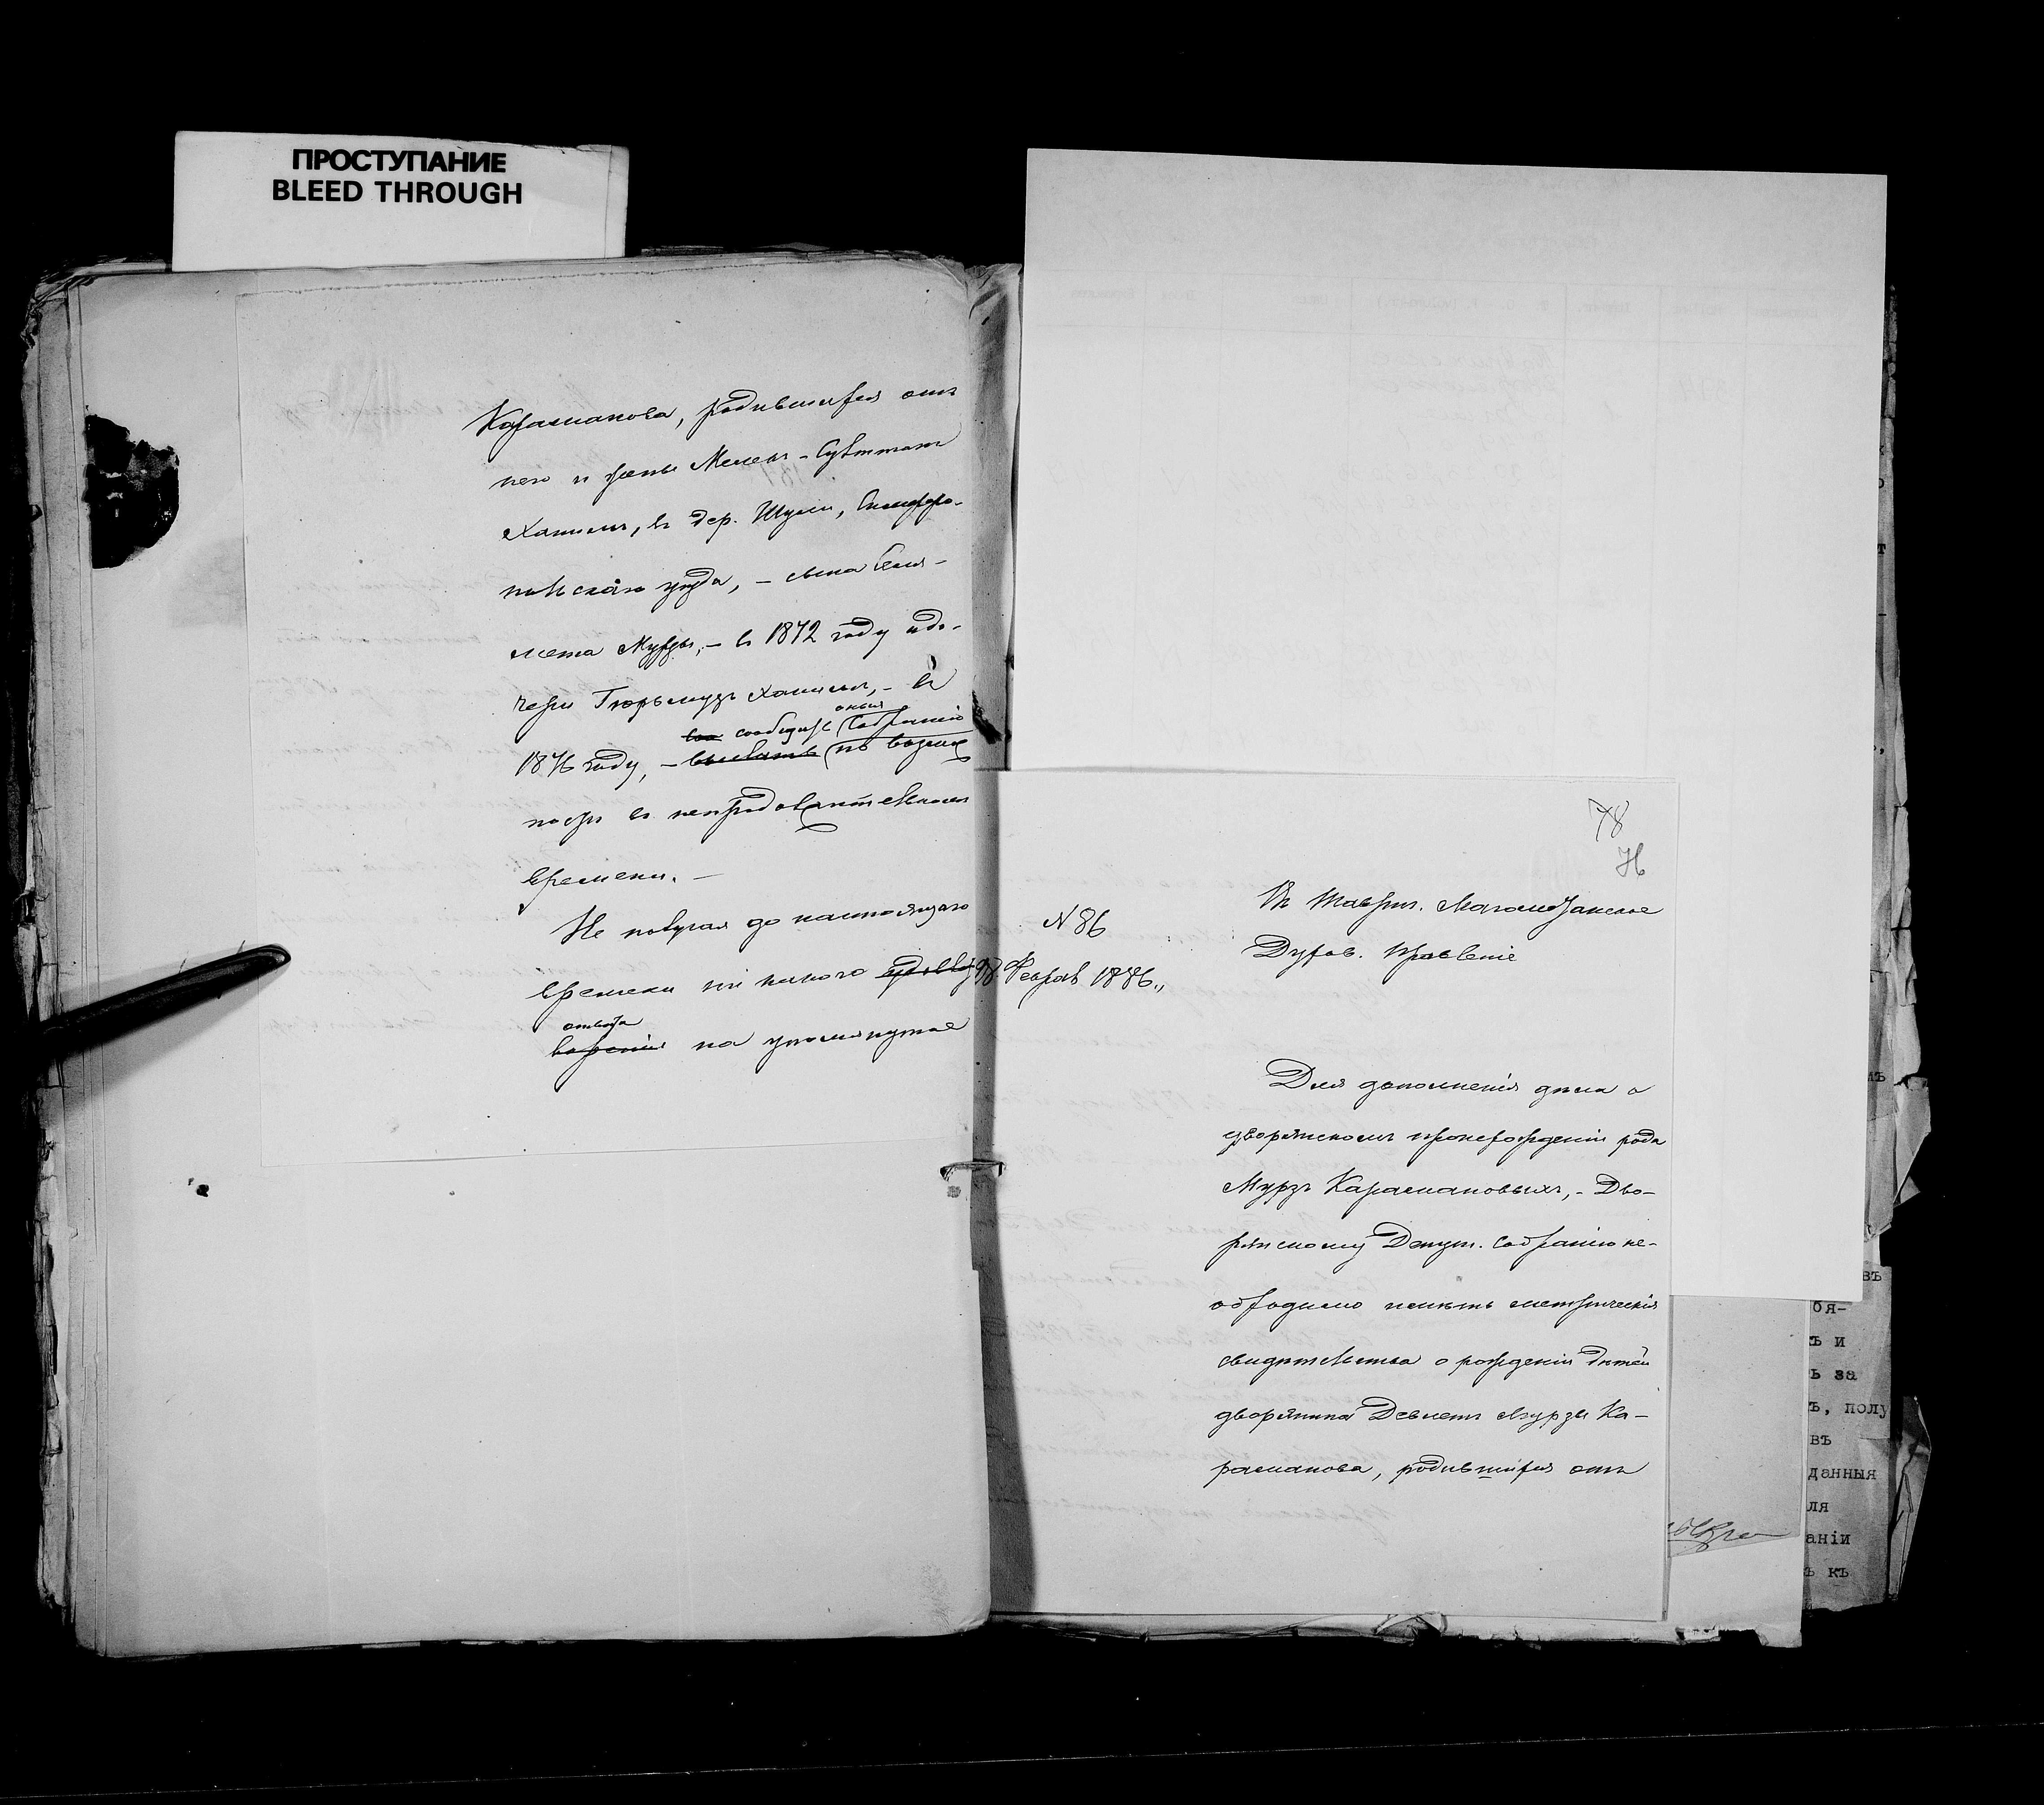 ПРОСТУПАНИЕ
BLEED THROUGH
Карашанова, родившихся отъ
него и жены Мелекъ-Султанъ
Ханымъ, въ дер. Шули, Симферо-
польскаго уѣзда, – сына
мета Мурзы, – въ 1872 году и до-
чери ханымъ, – въ
оныя
сообщить Собранію
1876 году, – выслать по возмож
ности въ непродолжительномъ
времени. –
Не получая до настоящаго
времени ни какого
отвѣта
воренія на упомянутое
78
76
Въ Таврич. Магометанское
Духов. Правленіе
N 86
Февраля 1886.,
Для дополненія дѣла о
дворянскомъ происхожденіи рода
Мурзъ Карашановыхъ, – Дво-
рянскому Депут. Собранію не-
обходимо имѣть метрическія
свидѣтельства о рожденіи дѣтей
дворянина Девлетъ Мурзы Ка-
рашанова, родившихся отъ
въ
бя-
ъ и
ъ за
ъ, полу
въ
данныя
ля
аніи
ъ къ